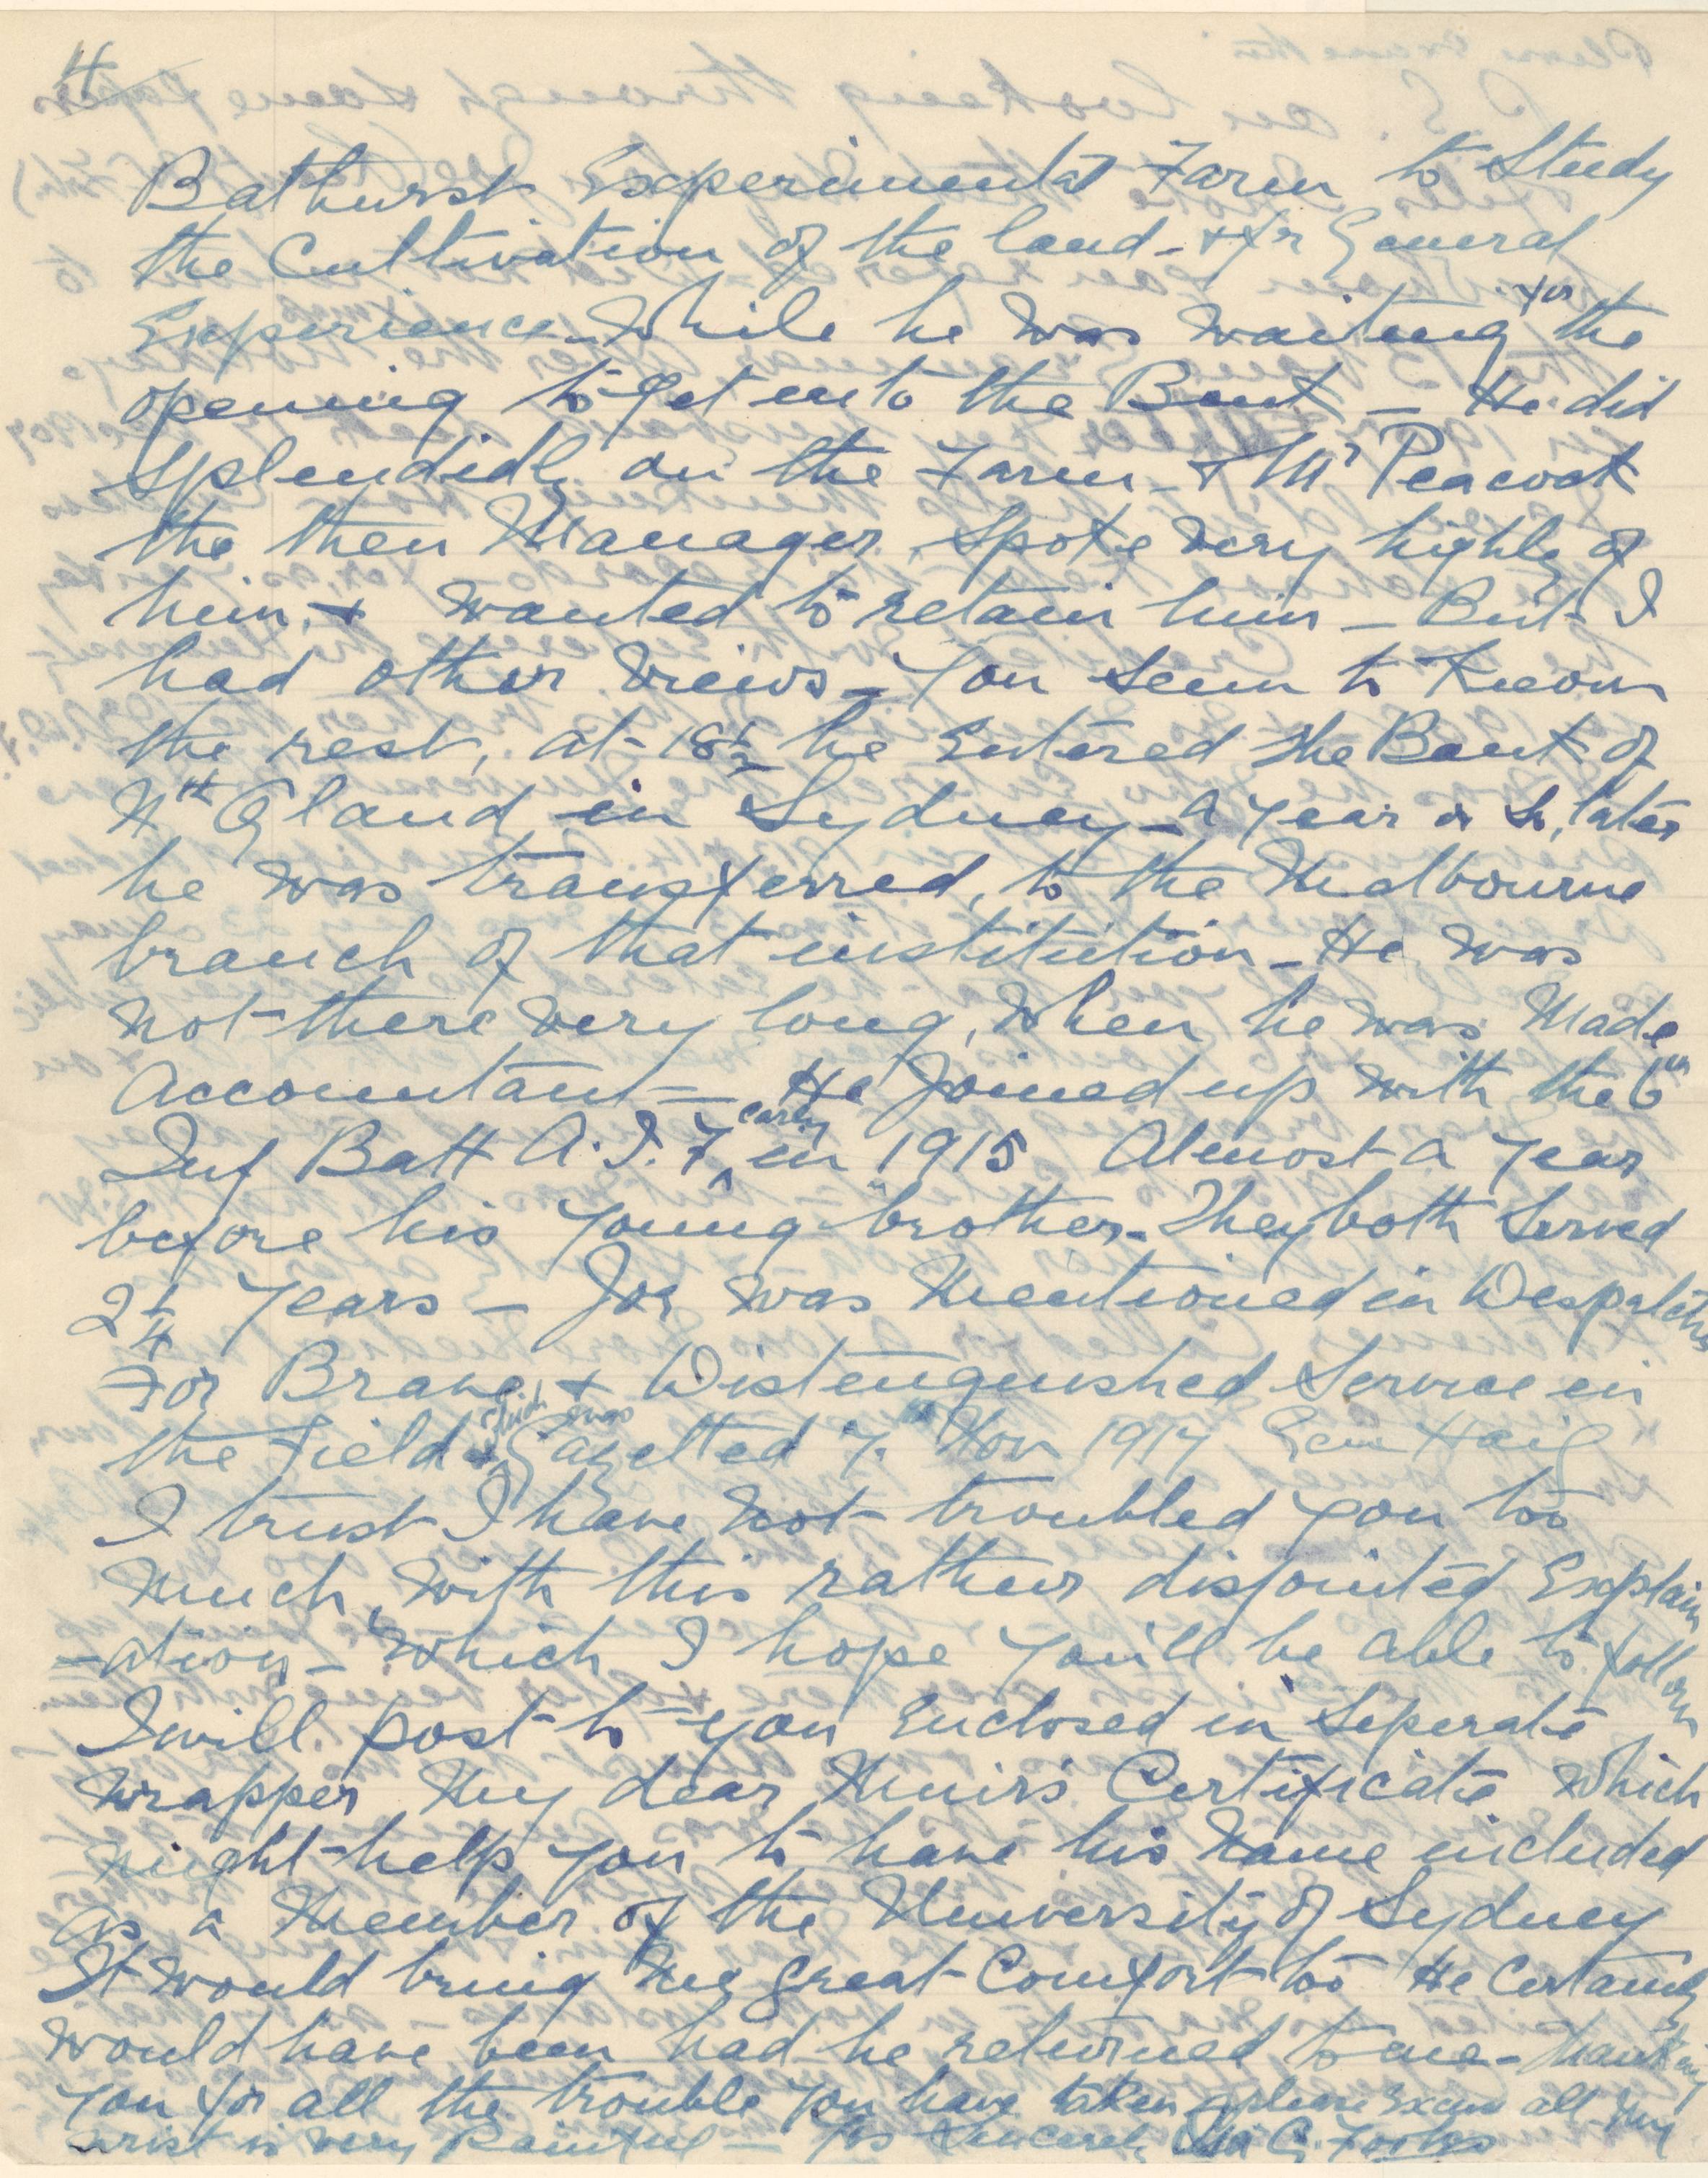 4
Bathurst Experimental Farm to Study
the Cultivation of the land - & for General
Experience - While he was waiting for the
opening to get into the Bank - He did
Splendidly on the Farm - & Mr Peacock
the then Manager, Spoke very highly of
him, & wanted to retain him - But I
had other views - You seem to Know
the rest, at 18½ he Entered the Bank of
Nth Qland in Sydney - a year or so, later
he was transferred, to the Melbourne
branch of that institution - He was
not there very long, when he was Made
Accountant - He Joined up with the 6th
Inf Batt A.I.F, early in 1915 Almost a year
before his young brother - They both Served
2¼ Years - Joe was Mentioned in Despatches
For Brave & Distinguished Service in
the Field & which was Gazetted 7th Nov 1917 Gen Haig
I trust I have not troubled you too
Much, with this rather disjointed Explain
-ation - Which I hope you'll be able to follow
I will post to you Enclosed in Seperate
wrapper My dear Muir's Certificate Which
might help you to have his Name included
as a Member of the University of Sydney
It would bring me great Comfort too He Certainly
would have been had he returned to me - Thanking
you for all the trouble you have taken & please Excuse all my
wrist is very Painful - Yrs Sincerely